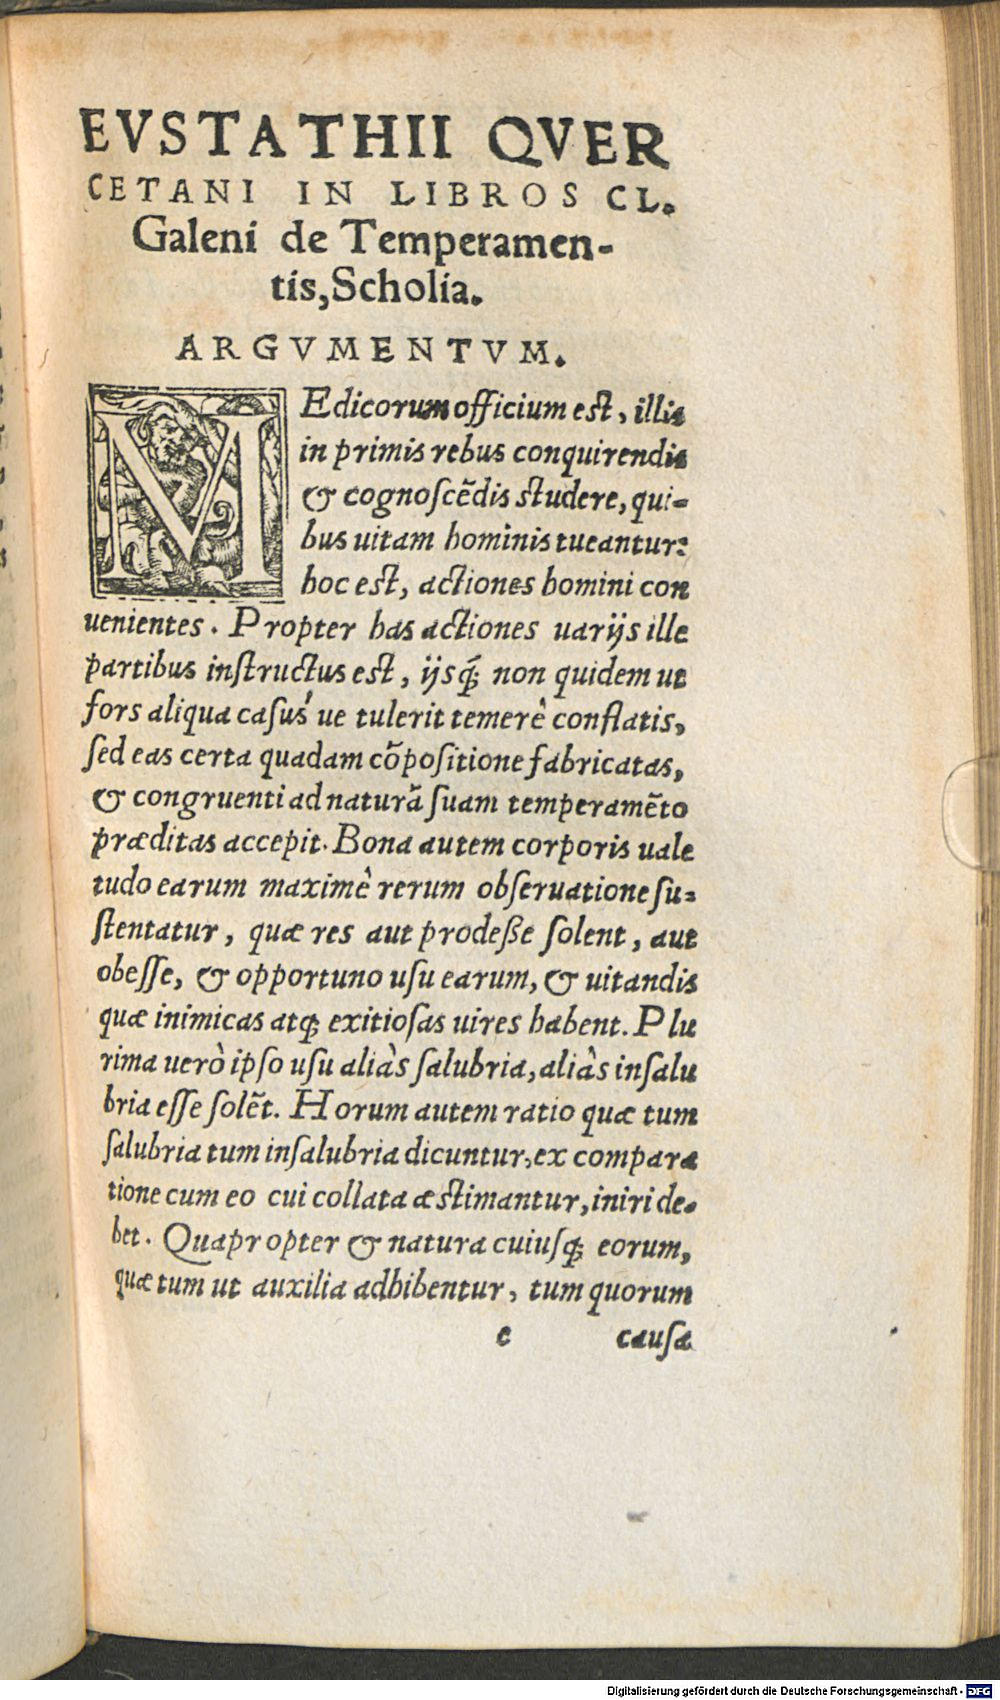 EVSTATHII QVER
CETANI IN LIBROS CL.
Galeni de Temperamen-
tis, Scholia.
ARGVMENTVM.
MEdicorum officium est, illis
in primis rebus conquirendis
& cognoſcẽdis studere, qui-
bus uitam hominis tueantur:
hoc est, actiones homini con
uenientes. Propter has actiones uarijs ille
partibus inſtructus est, ijsq́; non quidem ut
fors aliqua caſus´ ue tulerit temerè conflatis,
ſed eas certa quadam cõpoſitione fabricatas,
& congruenti ad naturã ſuam temperamẽto
præditas accepit. Bona autem corporis uale
tudo earum maximè rerum obſeruatione ſu-
ſtentatur, quæ res aut prodeſse ſolent, aut
obeſſe, & opportuno uſu earum, & uitandis
quæ inimicas atq; exitioſas uires habent. Plu
rima uerò ipſo uſu aliàs ſalubria, aliàs inſalu
bria eſſe ſolẽt. Horum autem ratio quæ tum
ſalubria tum inſalubria dicuntur, ex compara
tione cum eo cui collata æstimantur, iniri de-
bet. Quapropter & natura cuiuſq; eorum,
quæ tum ut auxilia adhibentur, tum quorum
e cauſa
Digitalisierung gefördert durch die Deutsche Forschungsgemeinschaft - DFG